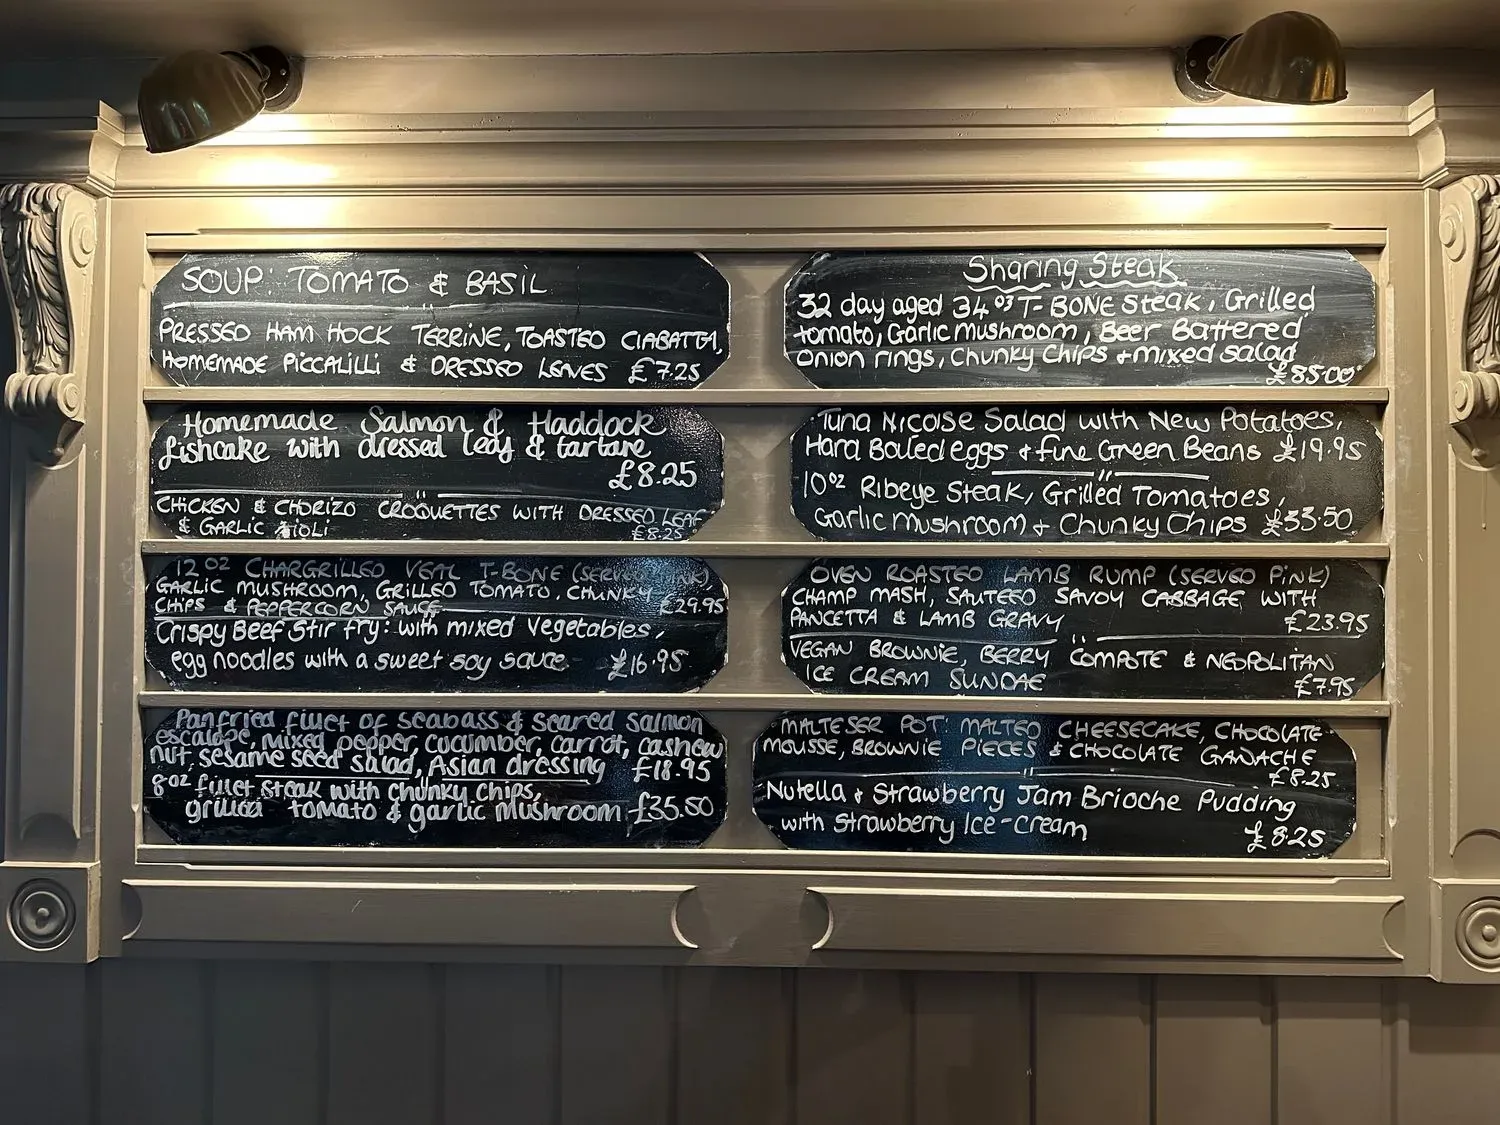 SOUP: TOMATO & BASIL
PRESSED HAM HOCK TERRINE, TOASTED CIABATTA,
HOMEMADE PICCALILLI & DRESSED LEAVES £7.25
Homemade Salmon & Haddock
fishcake with dressed leaf & tartare
£8.25
CHICKEN & CHORIZO CROQUETTES WITH DRESSED LEAF
& GARLIC AIOLI £8.25
12 OZ CHARGRILLED VEAL T-BONE (SERVED PINK)
GARLIC MUSHROOM, GRILLED TOMATO, CHUNKY
CHIPS & PEPPERCORN SAUCE £29.95
Crispy Beef Stir fry: with mixed vegetables,
egg noodles with a sweet soy sauce £16.95
Panfried fillet of seabass & seared salmon
escalope, mixed pepper, cucumber, carrot, cashew
nut, sesame seed salad, Asian dressing £18.95
8oz fillet steak with chunky chips,
grilled tomato & garlic mushroom £35.50
Sharing Steak
32 day aged 34oz T-BONE Steak, Grilled
tomato, Garlic Mushroom, Beer Battered
Onion rings, Chunky Chips + mixed salad
£85.00
Tuna Nicoise Salad with New Potatoes,
Hard Boiled eggs + fine Green Beans £19.95
10oz Ribeye Steak, Grilled Tomatoes,
Garlic Mushroom + Chunky Chips £33.50
OVEN ROASTED LAMB RUMP (SERVED PINK)
CHAMP MASH, SAUTEED SAVOY CABBAGE WITH
PANCETTA & LAMB GRAVY £23.95
VEGAN BROWNIE, BERRY COMPOTE & NEOPOLITAN
ICE CREAM SUNDAE £7.95
MALTESER POT: MALTED CHEESECAKE, CHOCOLATE
MOUSSE, BROWNIE PIECES & CHOCOLATE GANACHE
£8.25
Nutella + Strawberry Jam Brioche Pudding
with Strawberry Ice-Cream £8.25